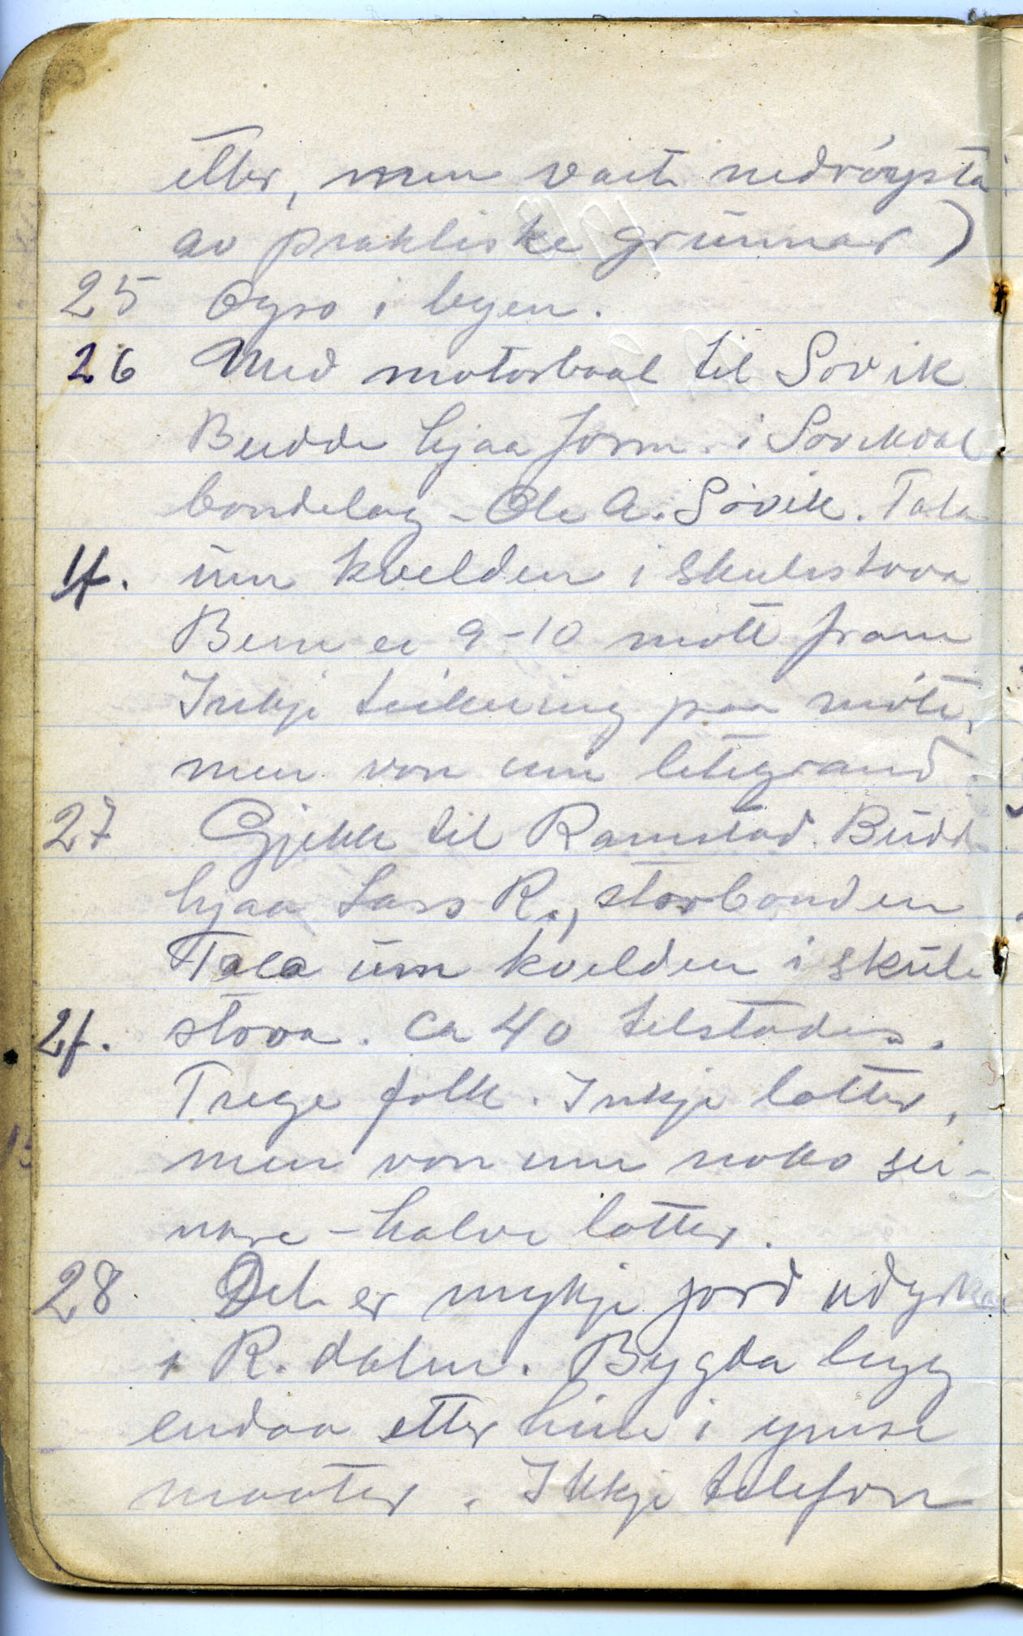 etter, men vart nedrøysta
av praktiske grunnar)
25 Ogso i byen.
26 Med motorbaat til Søvik
Budde hjaa form. i Søvikdal
bondelag - Ole A. Søvik. Tala
1f. um kvelden i skulestova
Berre ei 9-10 møtt fram
Inkje teikning paa møte,
men von um litegrand.
27 Gjekk til Ramstad. Budd
hjaa Lars R., storbonden
Tala um kvelden i skule
2f. stova. Ca 40 tilstades.
Trege folk. Inkje lotter,
men von um noko sei-
nare - halve lotter.
28 Det er mykje jord udyrka
i R. dalen. Bygda ligg
endaa etter hine i ymse
maatar. Ikkje telefon